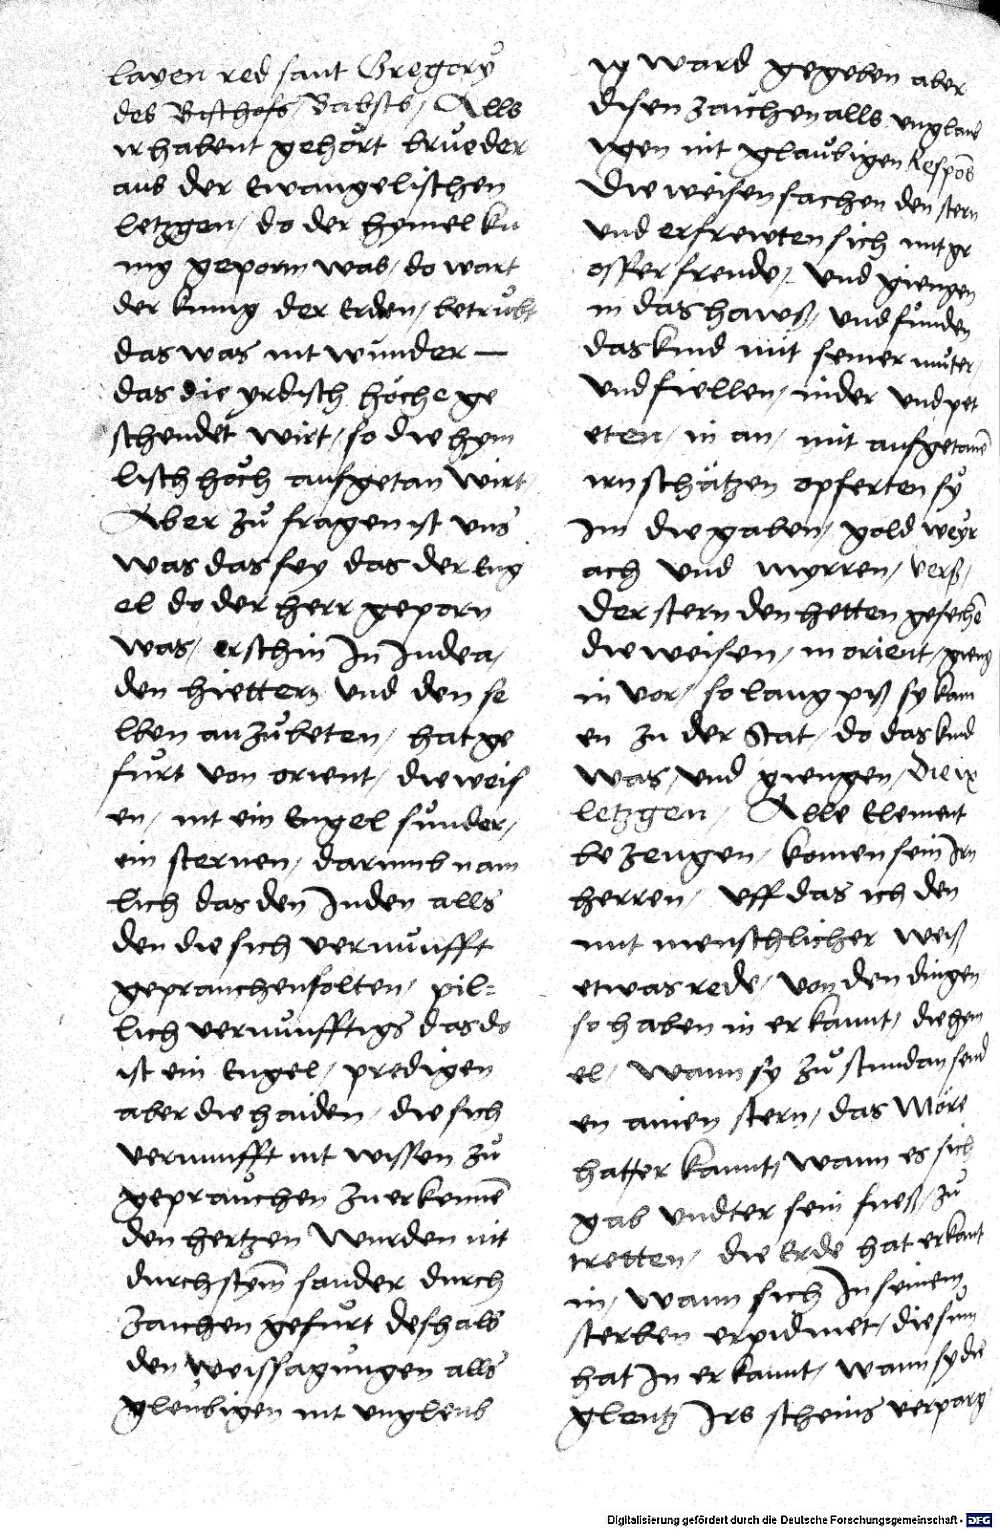 layen red sant Gregorÿ
des Bischofs / Babsts / Alls
ir habent gehört brueder
aus der Ewangelischen
letzgen / do der hymel ku
nig geporn was / do wart
der kunig der Erden / betrubt
das was nit wunder —
das die yrdisch höche ge
schendet wirt / so die hym
lisch hoch aufgetan wirt /
Aber zů fragen ist uns
was das sey das der Eng
el do der herr geporn
was / erschin In Iudea /
den hiettern und den se
lben anzůbeten / hat ge
furt von orient / die weis
en / nit ein Engel sunder /
ein sternen / darumb nam
lich das den Iuden alls
den die sich vernunfft
geprauchen solten / pil=
lich vernunfftigs das do
ist ein Engel / predigen
aber die haiden / die sich
vernunfft nit wissen zů
geprauchen zu erkennē
den hertzen wurden nit
durch stym̄ sander durch
zaichen gefurt deshalb
den weissagungen alls
gleubigen nit ungleub
ig ward gegeben aber
disen zaichen alls unglaub
igen nit glaubigen Respōs
Die weisen sachen den stern
und erfrewten sich mit gr
osser freude / und giengen
in das hawß / und funden
das kind mit seiner muter /
und fiellen / nider und pet
eten / in an / mit aufgetanē
irn schätzen opferten sÿ
Im die gaben / gold weyr
ach und myrren / verß /
Der stern den hetten gesechē
die weisen / in orient / gieng
in vor / so lang piß sy kam
en zu der Stat / do das kind
was / und giengen / Die ix
letzgen / Alle Element
bezeugen / komen sein Irn
herren / Uff das ich den
mit menschlicher weiß
etwas rede / von den dingen
so haben in erkannt / die hym
el / wann sy zů stund an send
en ainen stern / das Möre
hatt er kannt / wann es sich
gab undter sein fueß / zů
tretten / die Erde hat erkant
in / wann sich In seinem
sterben erpidmet / die sunn
hat In erkannt / wann sy die
glentz Irs scheins verporg
Digitalisierung gefördert durch die Deutsche Forschungsgemeinschaft - DFG